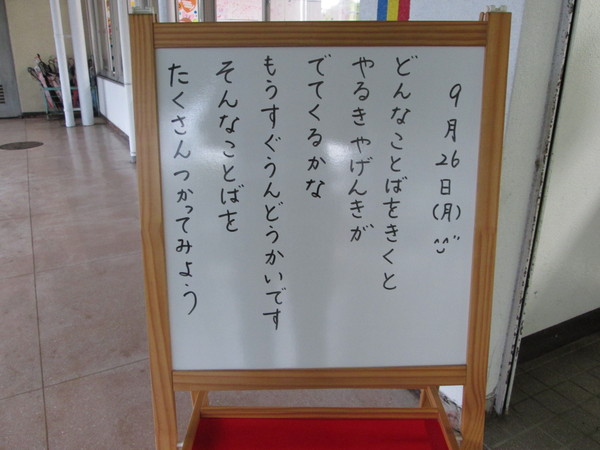 9月26日(月)
どんなことばをきくと
やるきやげんきが
でてくるかな
もうすぐうんどうかいです
そんなことばを
たくさんつかってみよう